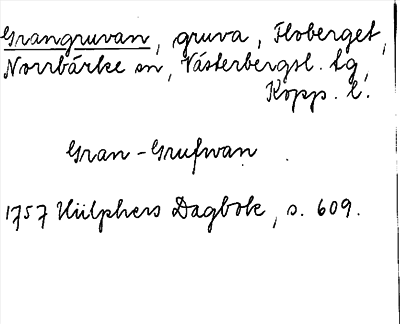 Grangruvan, gruva, Floberget,
Norrbärke sn, Västerbergsl. tg,
Kopp. l.
Gran-Grufwan.
1757 Hülphers Dagbok, s. 609.